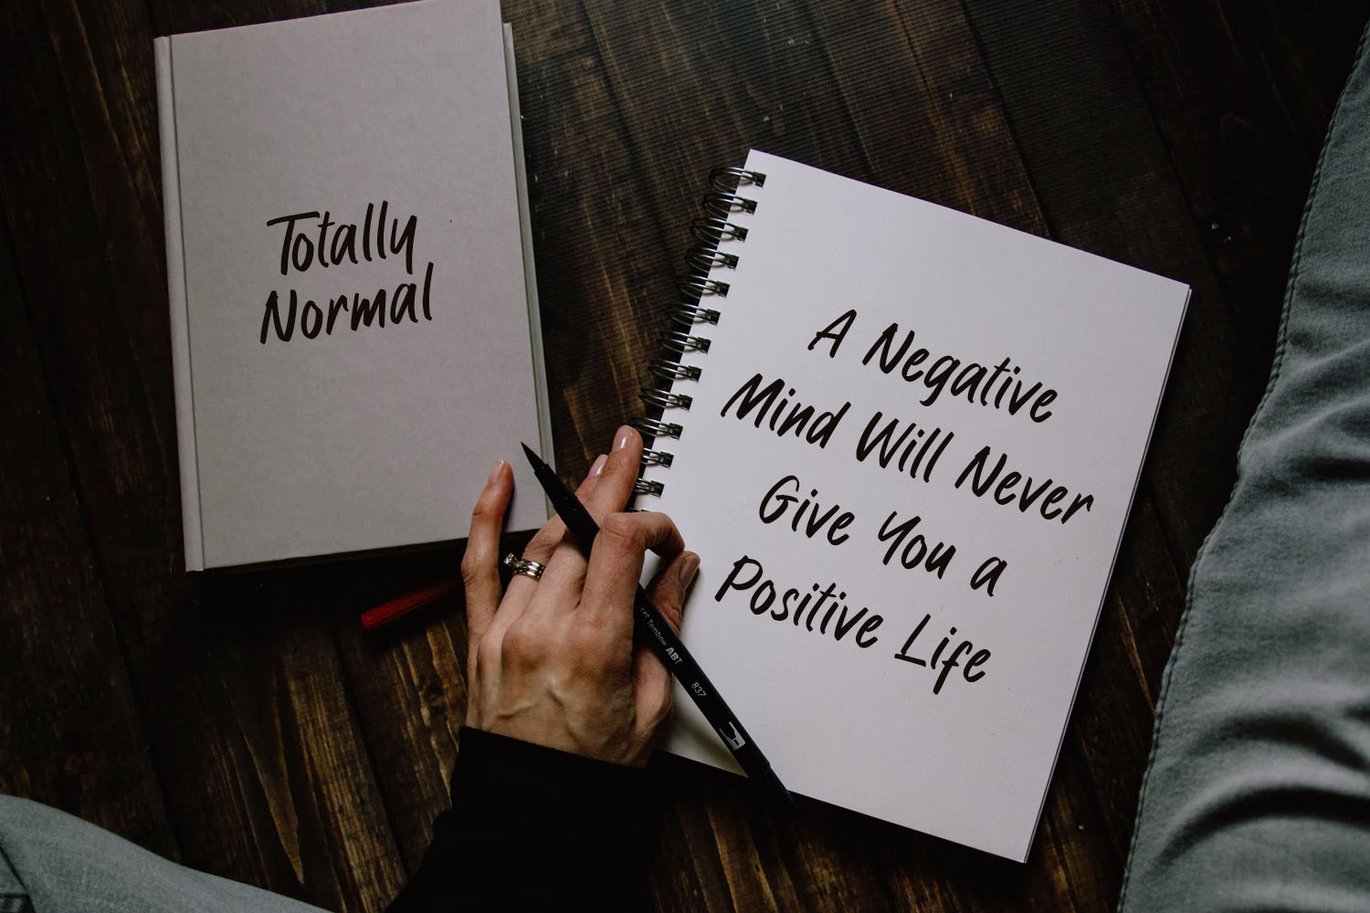 Totally
Normal
A Negative
Mind Will Never
Give You a
Positive Life
Tombow ABT
837